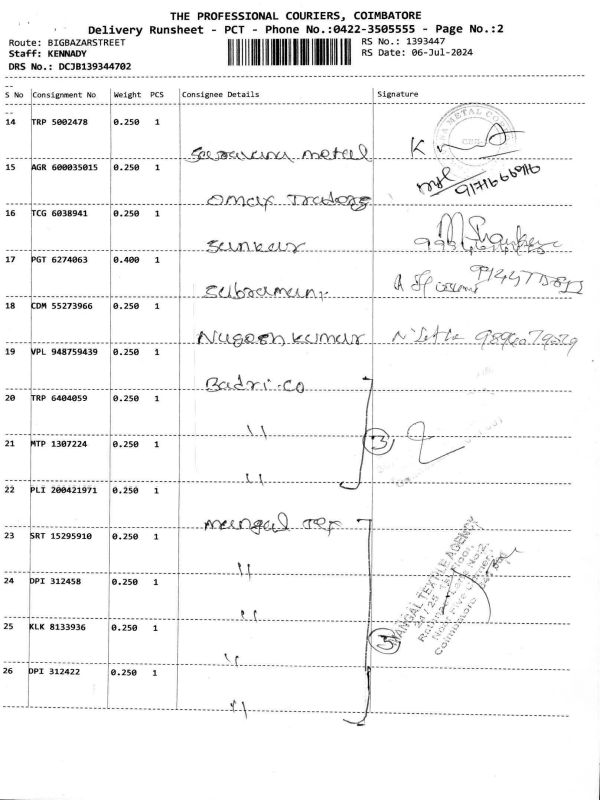 THE PROFESSIONAL COURIERS, COIMBATORE
Delivery Runsheet - PCT - Phone No.:0422-3505555 - Page No.:2
Route: BIGBAZARSTREET RS No.: 1393447
Staff: KENNADY RS Date: 06-Jul-2024
DRS No.: DCJB139344702
S No Consignment No Weight PCS Consignee Details Signature
14 TRP 5002478 0.250 1
metal
15 AGR 600035015 0.250 1
Omax Traders
16 TCG 6038941 0.250 1
Sankar
17 PGT 6274063 0.400 1
Subramani
18 CDM 55273966 0.250 1
Nagesh kumar
19 VPL 948759439 0.250 1
Badri.co
20 TRP 6404059 0.250 1
"
21 MTP 1307224 0.250 1 3
"
22 PLI 200421971 0.250 1
mangal Tex
23 SRT 15295910 0.250 1
"
24 DPI 312458 0.250 1
"
25 KLK 8133936 0.250 1 5
"
26 DPI 312422 0.250 1
"
MANGAL TEXTILE AGENCY
Coimbatore